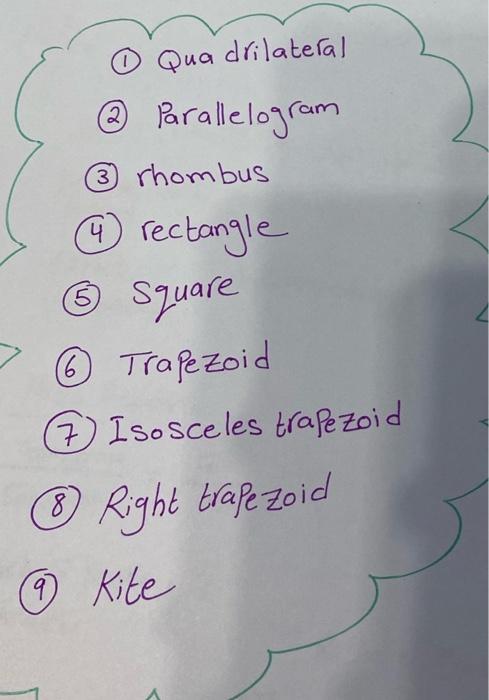 ① Quadrilateral
② Parallelogram
③ rhombus
④ rectangle
⑤ Square
⑥ Trapezoid
⑦ Isosceles trapezoid
⑧ Right trapezoid
⑨ Kite